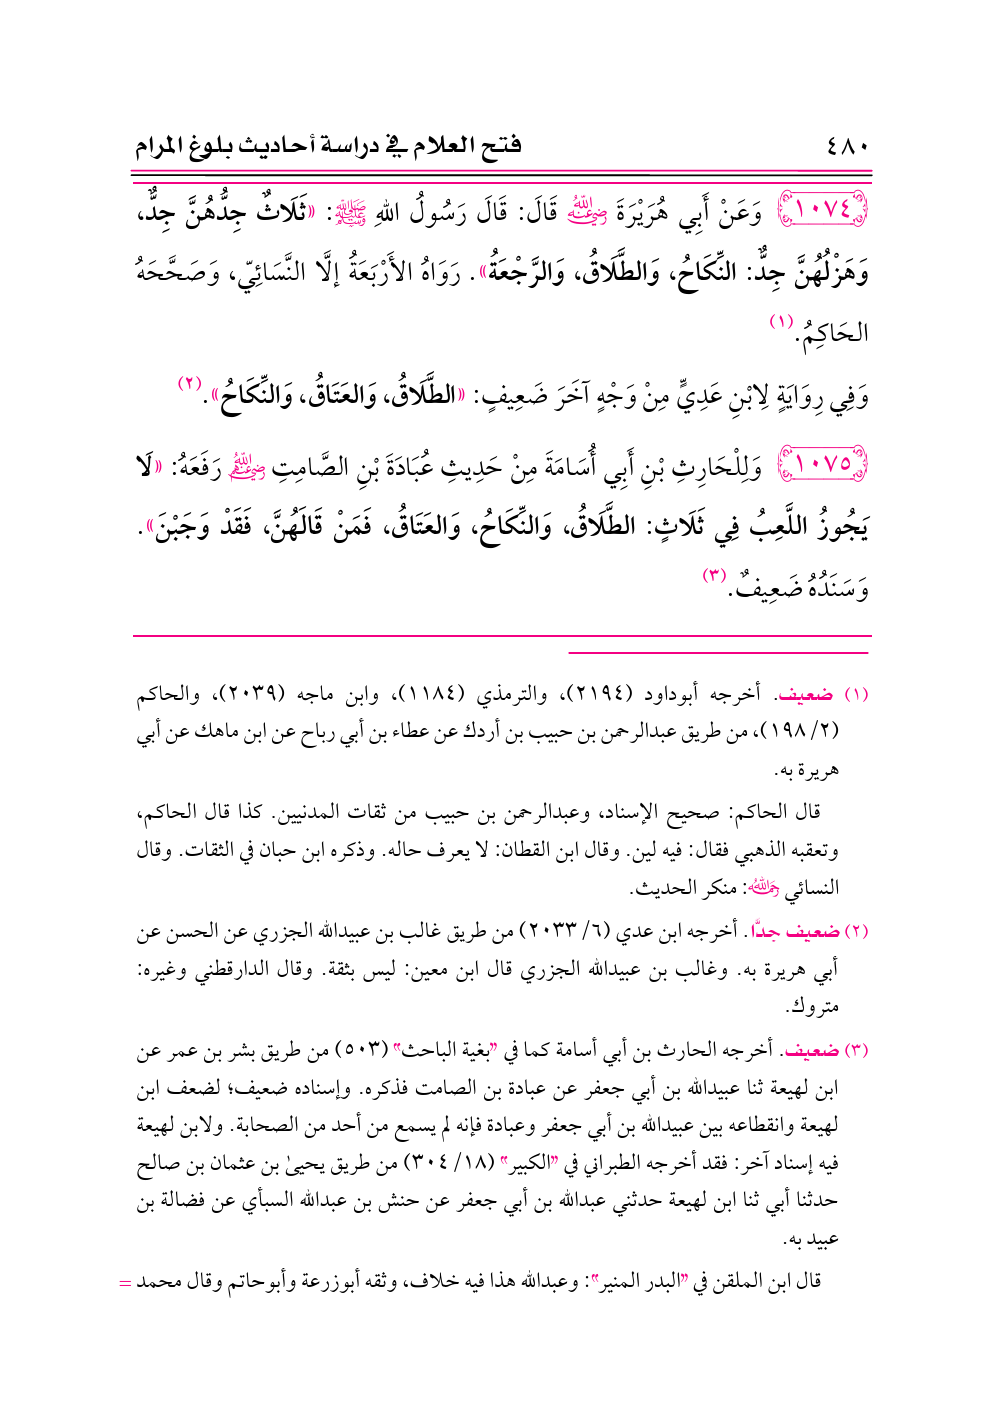 ٤٨٠ فتح العلام في دراسة أحاديث بلوغ المرام
١٠٧٤ وَعَنْ أَبِي هُرَيْرَةَ رضي الله عنه قَالَ: قَالَ رَسُولُ اللهِ ﷺ: «ثَلَاثٌ جِدُّهُنَّ جِدٌّ،
وَهَزْلُهُنَّ جِدٌّ: النِّكَاحُ، وَالطَّلَاقُ، وَالرَّجْعَةُ». رَوَاهُ الأَرْبَعَةُ إلَّا النَّسَائِيّ، وَصَحَّحَهُ
الحَاكِمُ.(١)
وَفِي رِوَايَةٍ لِابْنِ عَدِيٍّ مِنْ وَجْهٍ آخَرَ ضَعِيفٍ: «الطَّلَاقُ، وَالعَتَاقُ، وَالنِّكَاحُ».(٢)
١٠٧٥ وَلِلْحَارِثِ بْنِ أَبِي أُسَامَةَ مِنْ حَدِيثِ عُبَادَةَ بْنِ الصَّامِتِ رضي الله عنهم رَفَعَهُ: «لَا
يَجُوزُ اللَّعِبُ فِي ثَلَاثٍ: الطَّلَاقُ، وَالنِّكَاحُ، وَالعَتَاقُ، فَمَنْ قَالَهُنَّ، فَقَدْ وَجَبْنَ».
وَسَنَدُهُ ضَعِيفٌ.(٣)
(١) ضعيف. أخرجه أبوداود (٢١٩٤)، والترمذي (١١٨٤)، وابن ماجه (٢٠٣٩)، والحاكم
(٢/ ١٩٨)، من طريق عبدالرحمن بن حبيب بن أردك عن عطاء بن أبي رباح عن ابن ماهك عن أبي
هريرة به.
قال الحاكم: صحيح الإسناد، وعبدالرحمن بن حبيب من ثقات المدنيين. كذا قال الحاكم،
وتعقبه الذهبي فقال: فيه لين. وقال ابن القطان: لا يعرف حاله. وذكره ابن حبان في الثقات. وقال
النسائي رحمه الله: منكر الحديث.
(٢) ضعيف جدًّا. أخرجه ابن عدي (٦/ ٢٠٣٣) من طريق غالب بن عبيدالله الجزري عن الحسن عن
أبي هريرة به. وغالب بن عبيدالله الجزري قال ابن معين: ليس بثقة. وقال الدارقطني وغيره:
متروك.
(٣) ضعيف. أخرجه الحارث بن أبي أسامة كما في "بغية الباحث" (٥٠٣) من طريق بشر بن عمر عن
ابن لهيعة ثنا عبيدالله بن أبي جعفر عن عبادة بن الصامت فذكره. وإسناده ضعيف؛ لضعف ابن
لهيعة وانقطاعه بين عبيدالله بن أبي جعفر وعبادة فإنه لم يسمع من أحد من الصحابة. ولابن لهيعة
فيه إسناد آخر: فقد أخرجه الطبراني في "الكبير" (١٨/ ٣٠٤) من طريق يحيىٰ بن عثمان بن صالح
حدثنا أبي ثنا ابن لهيعة حدثني عبدالله بن أبي جعفر عن حنش بن عبدالله السبأي عن فضالة بن
عبيد به.
قال ابن الملقن في "البدر المنير": وعبدالله هذا فيه خلاف، وثقه أبوزرعة وأبوحاتم وقال محمد =